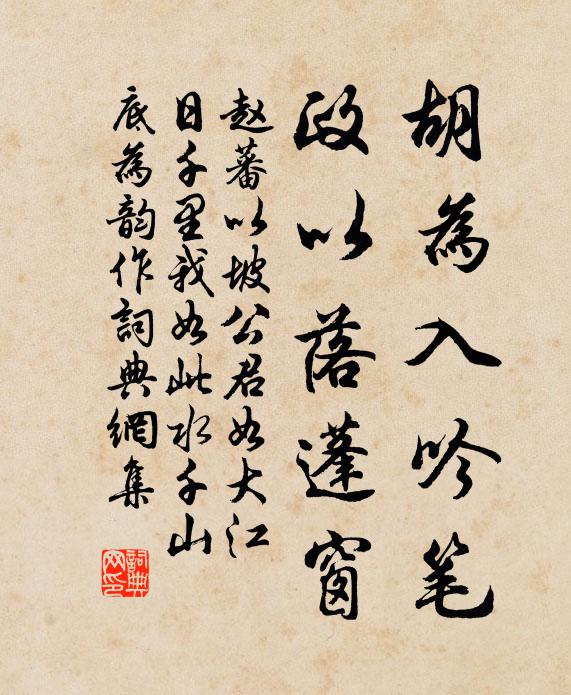 胡為入吟笔
政以落蓬窗
赵蕃以坡公君如大江
日千里我如此水千山
底為韵作詞典網集
詞典網印